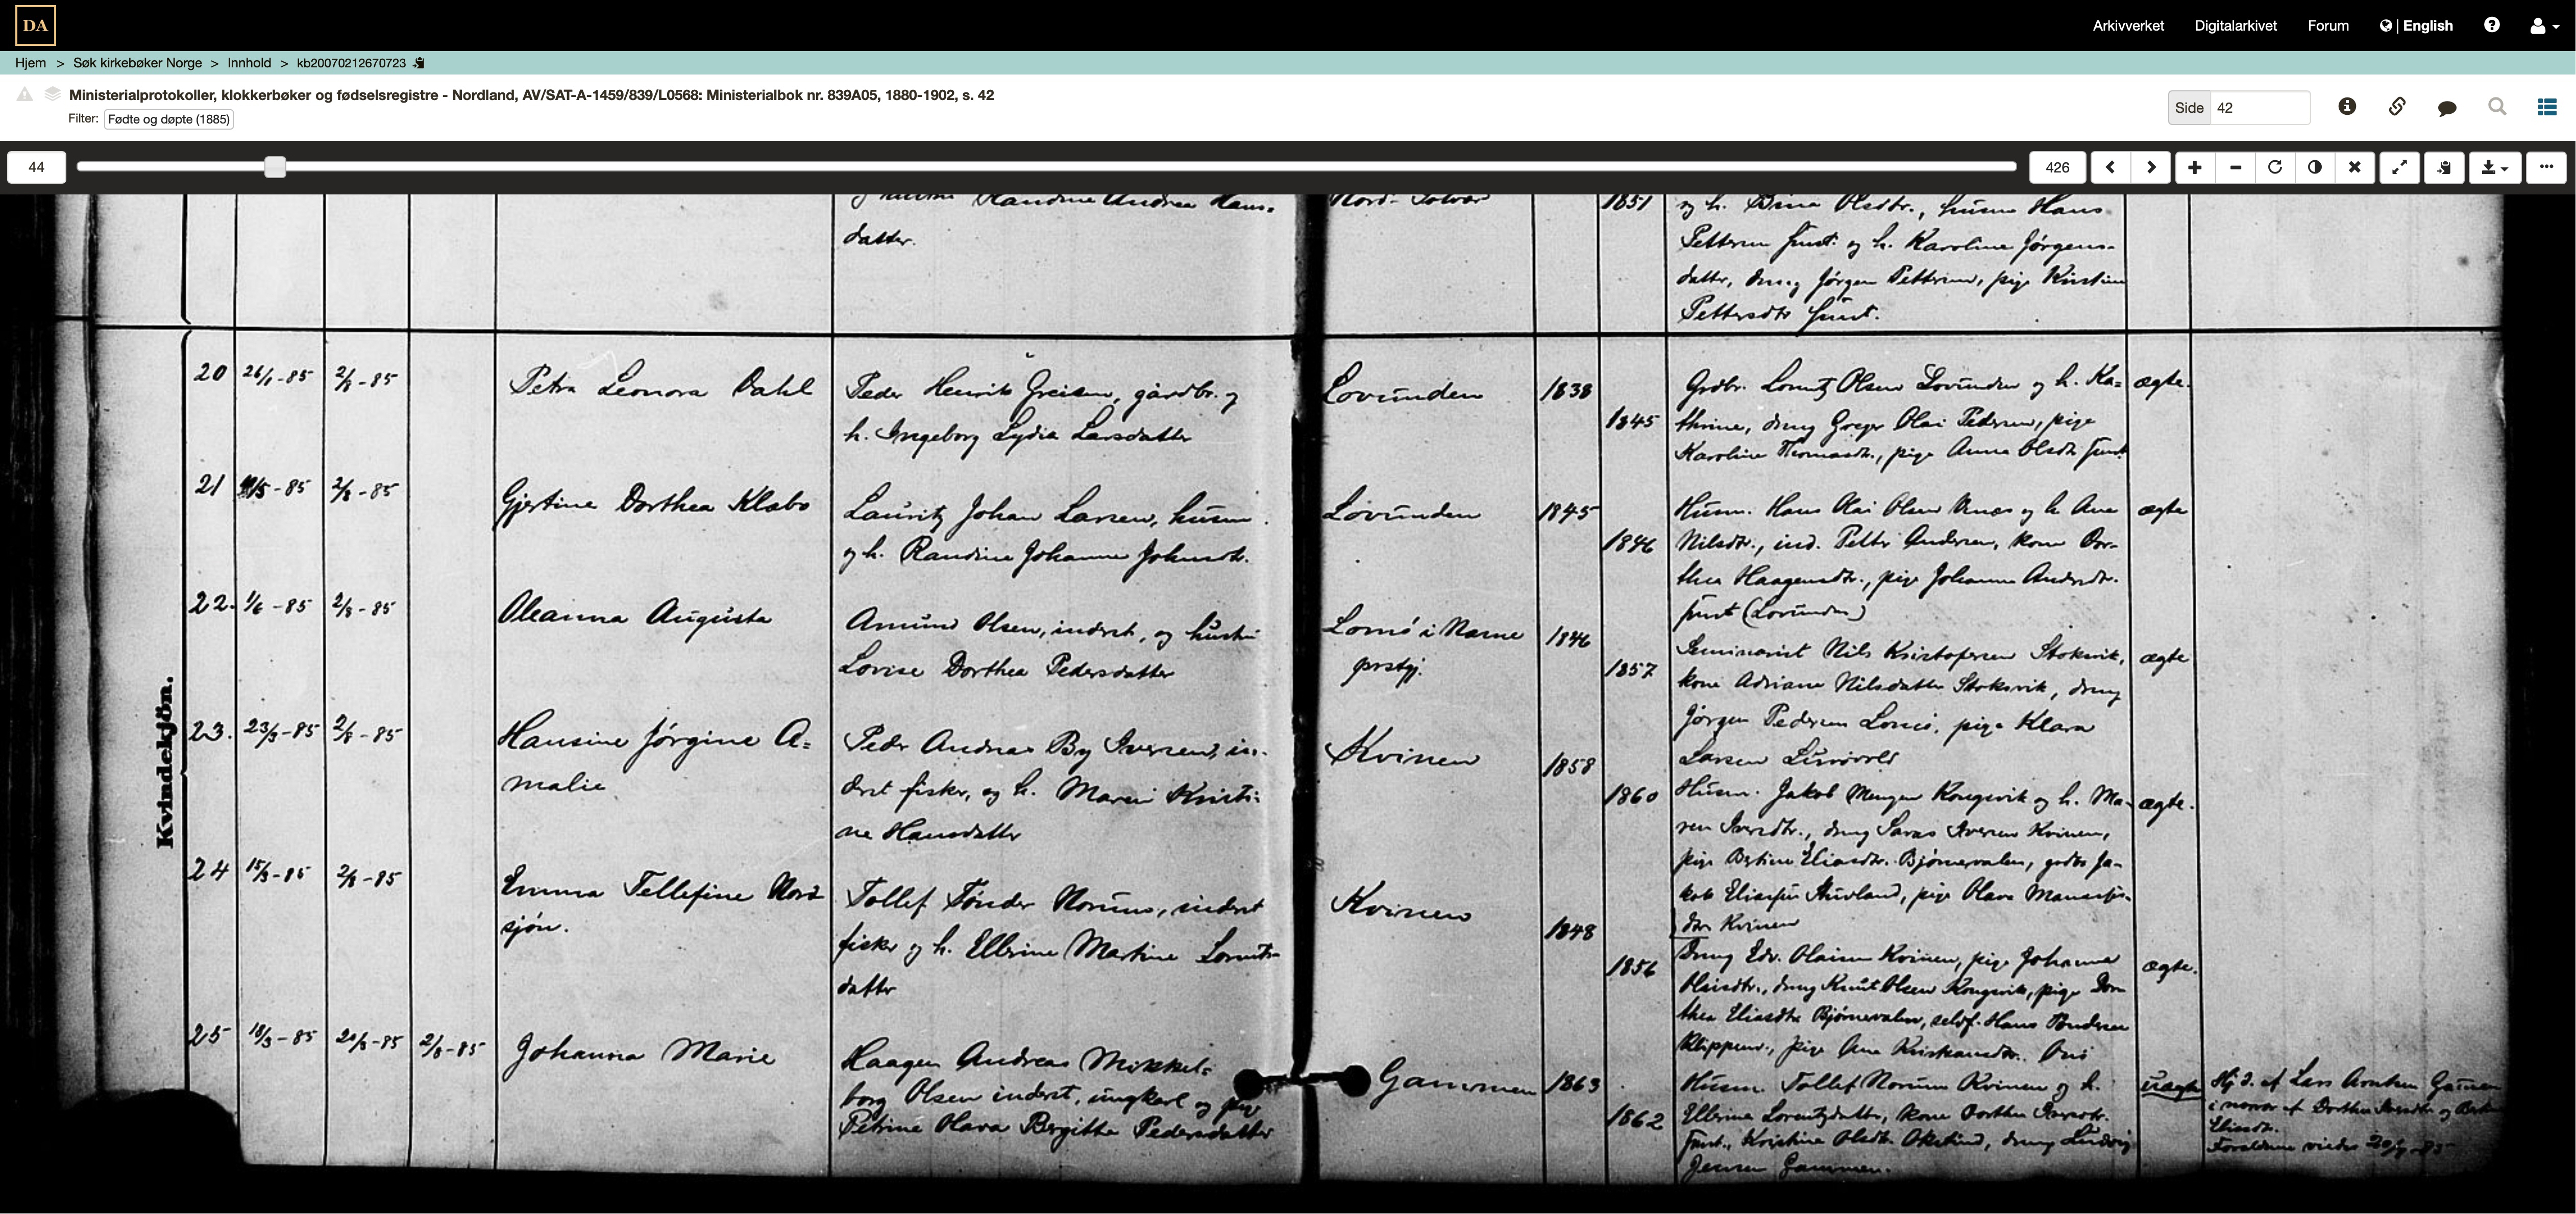 DA
Arkivverket Digitalarkivet Forum | English
Hjem > Søk kirkebøker Norge > Innhold > kb20070212670723
Ministerialprotokoller, klokkerbøker og fødselsregistre - Nordland, AV/SAT-A-1459/839/L0568: Ministerialbok nr. 839A05, 1880-1902, s. 42
Filter: Fødte og døpte (1885)
Side 42
44
426
Kvindekjön.
datter.
1851
og h. Olsdtr., Hans
Pettersen og h. Karoline Jørgens-
datter, Jørgen Pettersen, pige
Pettersdtr
20 26/1-85 2/8-85 Petra Leonora Dahl
Peder Henrik Greisen, gårdbr. og
h. Ingeborg Lydia Larsdatter
Lovunden 1838
1845
Grdbr. Olsen Lovunden og h. Ka=
thrine, Olai Pedersen, pige
Karoline Thomasdtr., pige Anna Olsdtr
ægte.
21 -85 2/8-85 Gjertine Dorthea Klabo
Lauritz Johan Larsen, husm.
og h. Randine Johanna Johnsdtr.
Lovunden 1845
1846
Husm. Hans Olai Olsen og h. Ane
Nilsdtr., ind. Andersen, kone Dor-
thea Haagensdtr., pige Johanna
(Lovunden)
ægte
22. 1/6-85 2/8-85 Oleanna Augusta
Amund Olsen, inderst, og hustru
Lovise Dorthea Pedersdatter
i Næsne
prstgj.
1846
1857
Seminarist Nils Kristofersen Stoksvik,
kone Adriane Nilsdatter Stoksvik,
Jørgen Pedersen pige Klara
Larsen
ægte
23. 23/3-85 2/8-85 Hansine Jørgine A=
malie
Peder Andreas By Iversen, in-
derst fisker, og h. Maren Kristi-
ne Hansdatter
Kvinen 1858
1860
Husm. Jakob Kongsvik og h. Ma-
ren Iversdtr., Iversen Kvinen,
pige Eliasdtr. Bjørnevalen, Ja-
kob pige Olava
Kvinen
ægte.
24 15/3-85 2/8-85 Emma Tellefine Nord
sjøn.
Tollef Tønder Norum, inderst
fisker og h. Ellerine Martine
datter
Kvinen 1848
1856
Edv. Kvinen, pige Johanna
Knut Olsen Kongsvik, pige Dor-
thea Eliasdtr Bjørnevalen, Hans
pige Ane
ægte.
25 18/3-85 -85 2/8-85 Johanna Marie
Haagen Andreas Mikkel-
borg Olsen inderst, ungkarl og pige
Petrine Olava Birgitta Pedersdatter
Gammen 1863
1862
Husm. Tollef Norum Kvinen og h.
Ellerine Lorentzdatter, kone Dorthea
Kristine Olsdtr. Ludvig
Jensen Gammen.
uægte
Hj. d. af Lars
i nærvær af Dorthea og
Eliasdtr.
Forældrene viedes -85